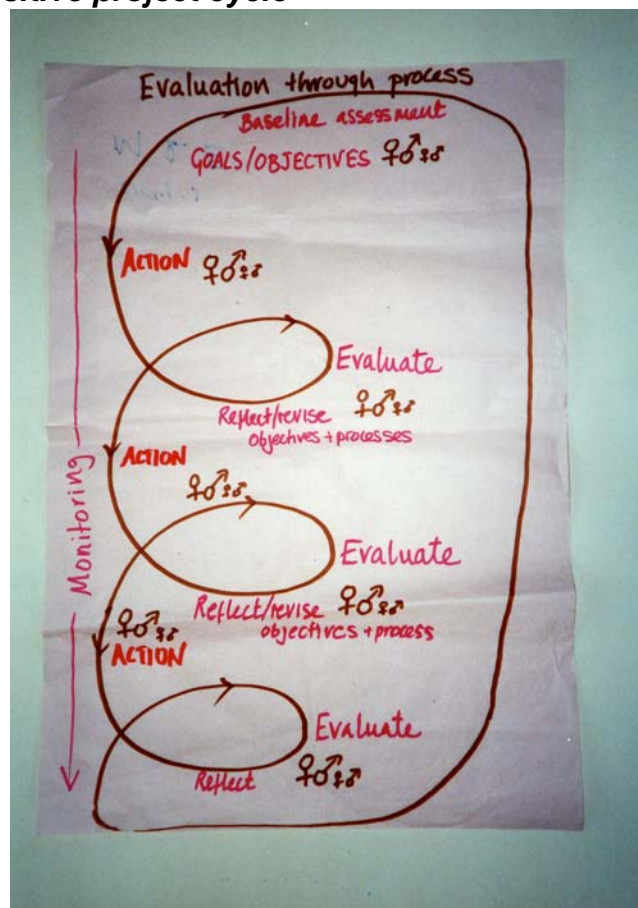 project cycle
Evaluation through process
Baseline assessment
GOALS/OBJECTIVES ♀♂♀♂
ACTION ♀♂♀♂
Evaluate
Reflect/revise ♀♂♀♂
objectives + processes
ACTION
♀♂♀♂
Monitoring
Evaluate
Reflect/revise ♀♂♀♂
objectives + process
♀♂♀♂
ACTION
Evaluate
Reflect ♀♂♀♂